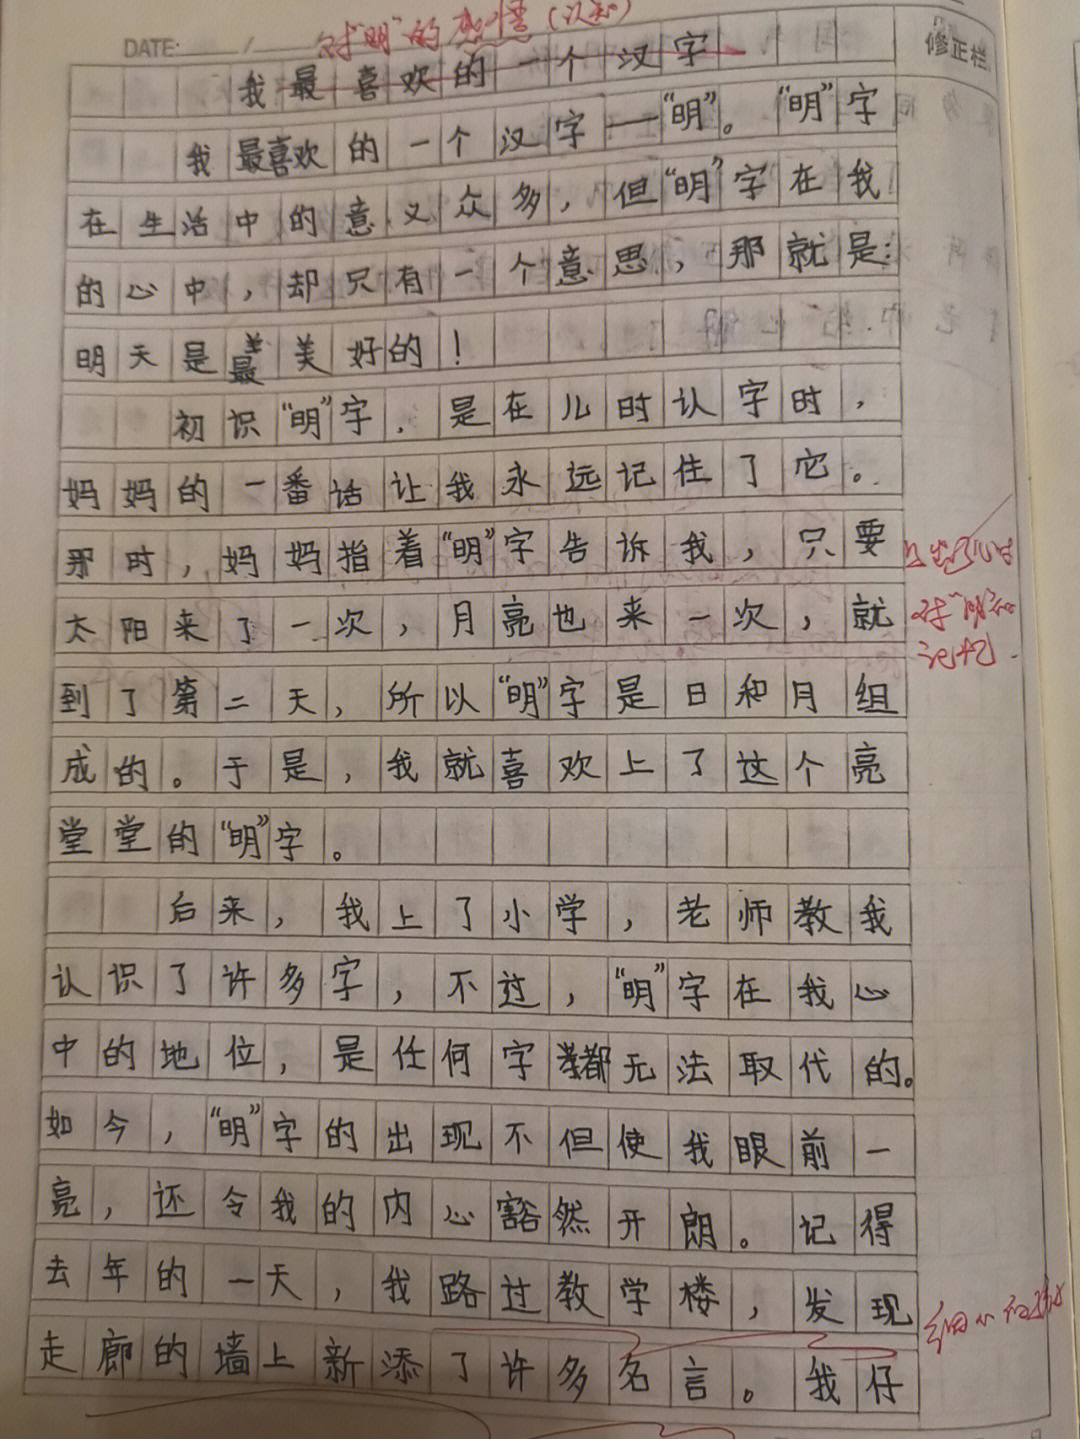 对"明"的感悟（认知）
DATE: / 修正栏
我最喜欢的一个汉字
我最喜欢的一个汉字——"明"。"明"字
在生活中的意义众多，但"明"字在我
的心中，却只有一个意思，那就是：
明天是最美好的！
初识"明"字，是在儿时认字时，
妈妈的一番话让我永远记住了它。
那时，妈妈指着"明"字告诉我，只要
太阳来了一次，月亮也来一次，就
对"明"
记忆.
到了第二天，所以"明"字是日和月组
成的。于是，我就喜欢上了这个亮
堂堂的"明"字。
后来，我上了小学，老师教我
认识了许多字，不过，"明"字在我心
中的地位，是任何字都无法取代的。
如今，"明"字的出现不但使我眼前一
亮，还令我的内心豁然开朗。记得
去年的一天，我路过教学楼，发现
走廊的墙上新添了许多名言。我仔